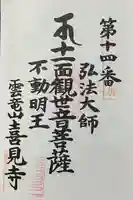 第十四番
弘法大師
十一面觀世音菩薩
不動明王
雲竜山喜見寺